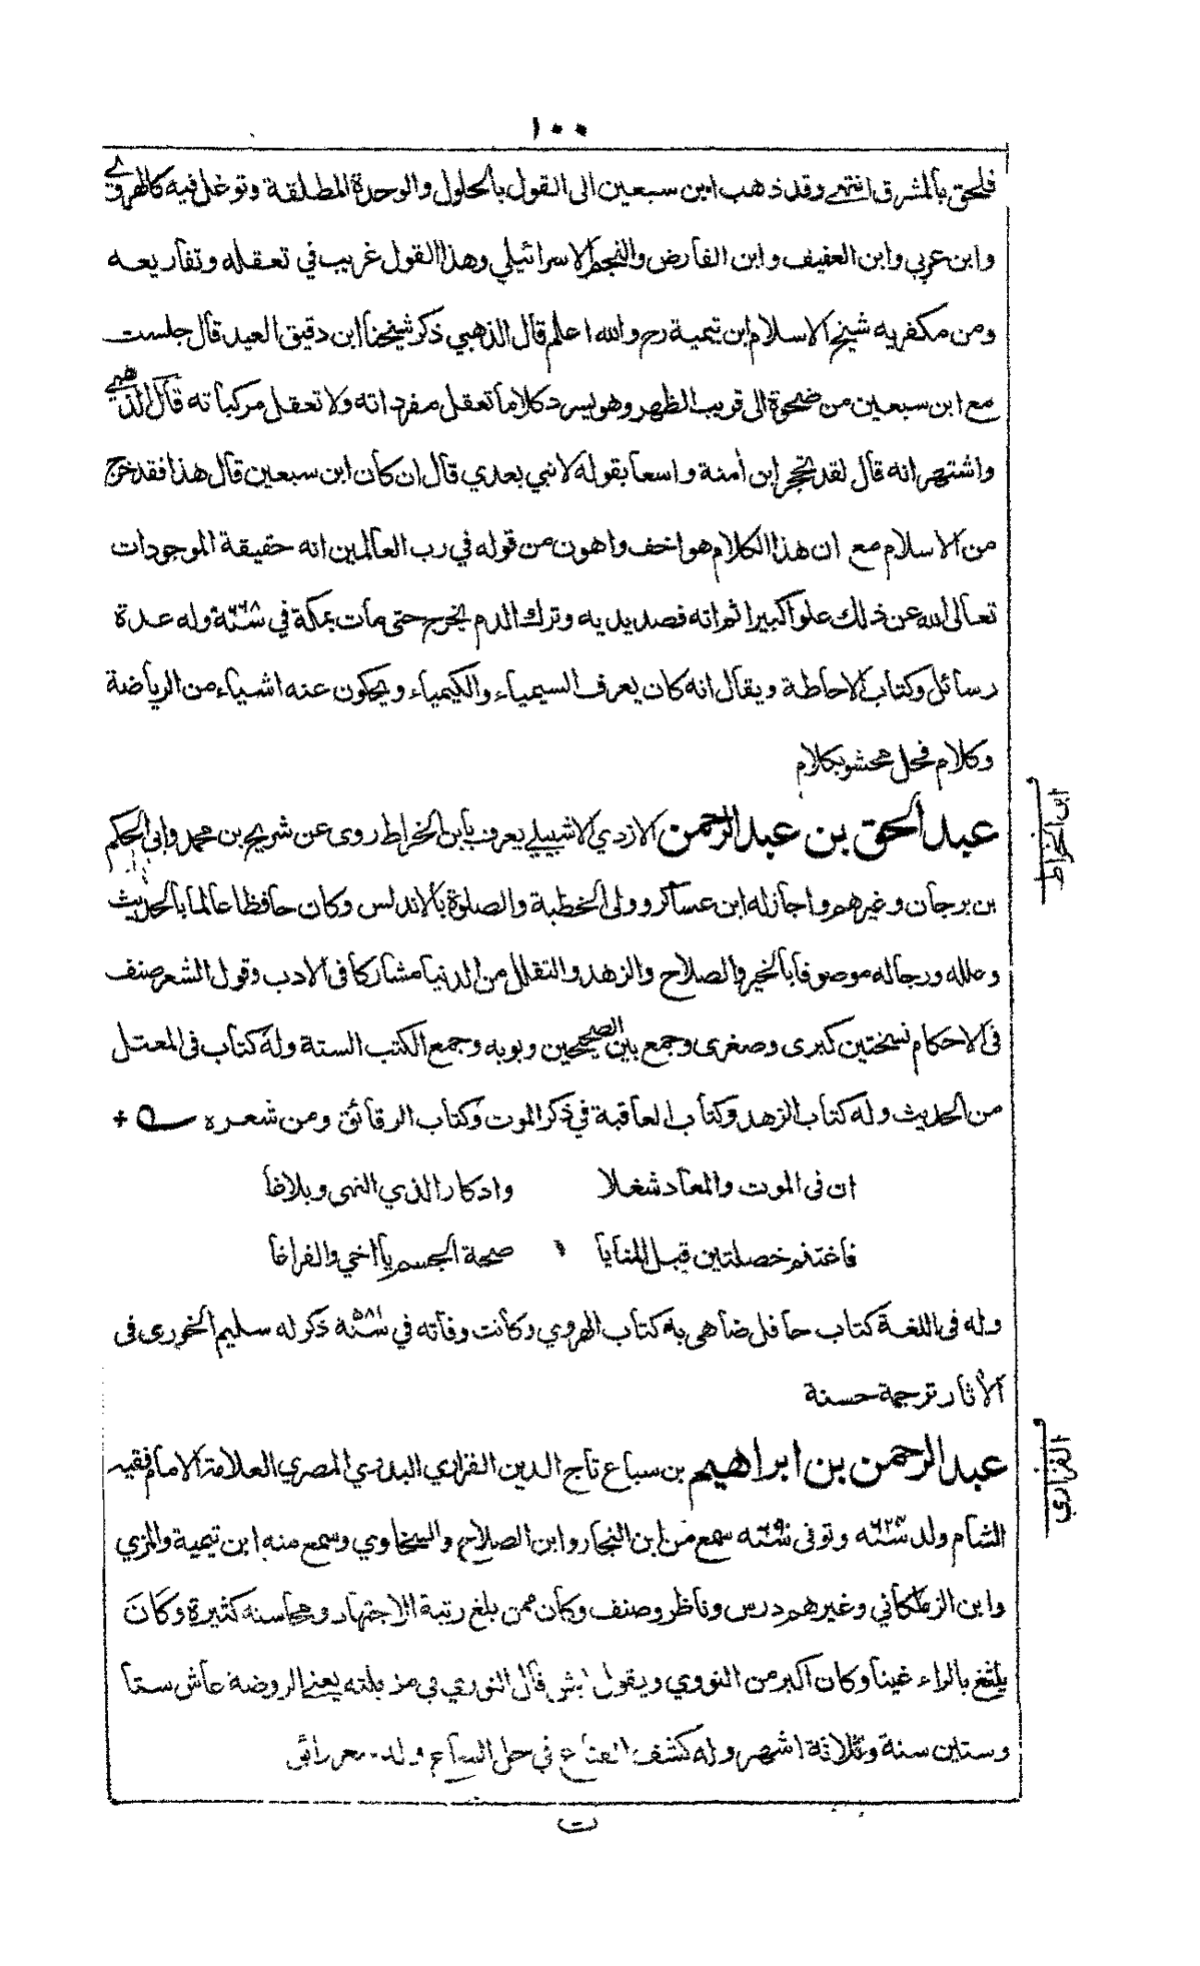 ١٠٠
فلحق بالمشرق انتهى وقد ذهب ابن سبعين الى القول بالحلول والوحدة المطلقة وتوغل فيه كالهروي
وابن عربي وابن العفيف وابن الفارض والنجم الاسرائيلي وهذا القول غريب في تعقله وتفاريعه
ومن مكفريه شيخ الاسلام ابن تيمية رح والله اعلم قال الذهبي ذكر شيخنا ابن دقيق العيد قال جلست
مع ابن سبعين من ضحوة الى قريب الظهر وهو يسرد كلاما تعقل مفرداته ولا تعقل مركباته قال الذهبي
واشتهر انه قال لقد تحجر ابن أمنة واسعا بقوله لا نبي بعدي قال ان كان ابن سبعين قال هذا فقد خرج
من الاسلام مع ان هذا الكلام هو اخف واهون من قوله في رب العالمين انه حقيقة الموجودات
تعالى الله عن ذلك علوا كبيرا ثم انه فصد يديه وترك الدم يخرج حتى مات بمكة في سنة ٦٦٨ وله عدة
رسائل وكتاب الاحاطة ويقال انه كان يعرف السيمياء والكيمياء ويحكون عنه اشياء من الرياضة
وكلام فحل محشو بكلام
ابن الخراط
عبد الحق بن عبد الرحمن الازدي الاشبيلي يعرف بابن الخراط روى عن شريح بن محمد وابى الحكم
بن برجان وغيرهم واجاز له ابن عساكر وولى الخطبة والصلوة بالاندلس وكان حافظا عالما بالحديث
وعلله ورجاله موصوفا بالخير والصلاح والزهد والتقلل من الدنيا مشاركا فى الادب وقول الشعر صنف
فى الاحكام نسختين كبرى وصغرى وجمع بين الصحيحين وبوبه وجمع الكتب الستة وله كتاب فى المعتل
من الحديث وله كتاب الزهد وكتاب العاقبة في ذكر الموت وكتاب الرقائق ومن شعره +
ان فى الموت والمعاد شغلا وادكارا لذي النهى وبلاغا
فاغتنم خصلتين قبل المنايا صحة الجسم يا اخي والفراغا
وله فى اللغة كتاب حافل ضاهى به كتاب الهروي وكانت وفاته في سنة ٥٨١ ذكر له سليم الخورى فى
الأثار ترجمة حسنة
الفزاري
عبد الرحمن بن ابراهيم بن سباع تاج الدين الفزاري البدري المصري العلامة الامام فقيه
الشام ولد سنة ٦٢٣ وتوفى سنة ٦٩٠ سمع من ابن النجار وابن الصلاح والسخاوي وسمع منه ابن تيمية والمزي
وابن الزملكاني وغيرهم درس وناظر وصنف وكان ممن بلغ رتبة الاجتهاد ومحاسنه كثيرة وكان
يلثغ بالراء غينا وكان اكبر من النووي ويقول ايش قال النووي في مزبلته يعني الروضة عاش ستا
وستين سنة وثلاثة اشهر وله كشف القناع في حل السماع وله شعر رائق
ت